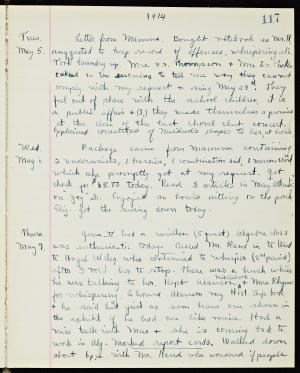 1914
117
Tues.
May 5.
Letter from Mamma. Bought notebook as Mr. H
suggested to keep record of offenses, whispering etc.
Took laundry up. Mrs. Thompson & Mrs. Dr.
called in the evening to tell me why they cannot
comply with my request & sing May 29th. They
feel out of place with the school children, it is
a public affair & (3) they made themselves a promise
at the close of the last choral club concert.
Explained correction of Mildred's paper to her at hours
Wed.
May 6
Package came from Mamma containing
2 underwaists, 1 brassiere, 1 combination suit, 1 narrow
which she promptly got at my request. Got
check for $65.00 today. Read 3 articles in May Atlantic
on
Alg. Got the swing down today.
Thurs.
May 7.
Gave II had a written (5 quest) Algebra class
was enthusiastic today. Called Mr. Rand in to
to Hazel Wiley who continued to whisper (3rd period)
after I told her to stop. There was a hush while
he was talking to her. Kept &
for whispering. Showed my Hist dep't book
& he said he'd just as soon have one shown in
the exhibit if he had one like mine. Had a
nice talk with Max & she is coming back to
work in Alg. Marked report cards. Walked down
about 6 p.m. with Mr. Rand who wondered if people